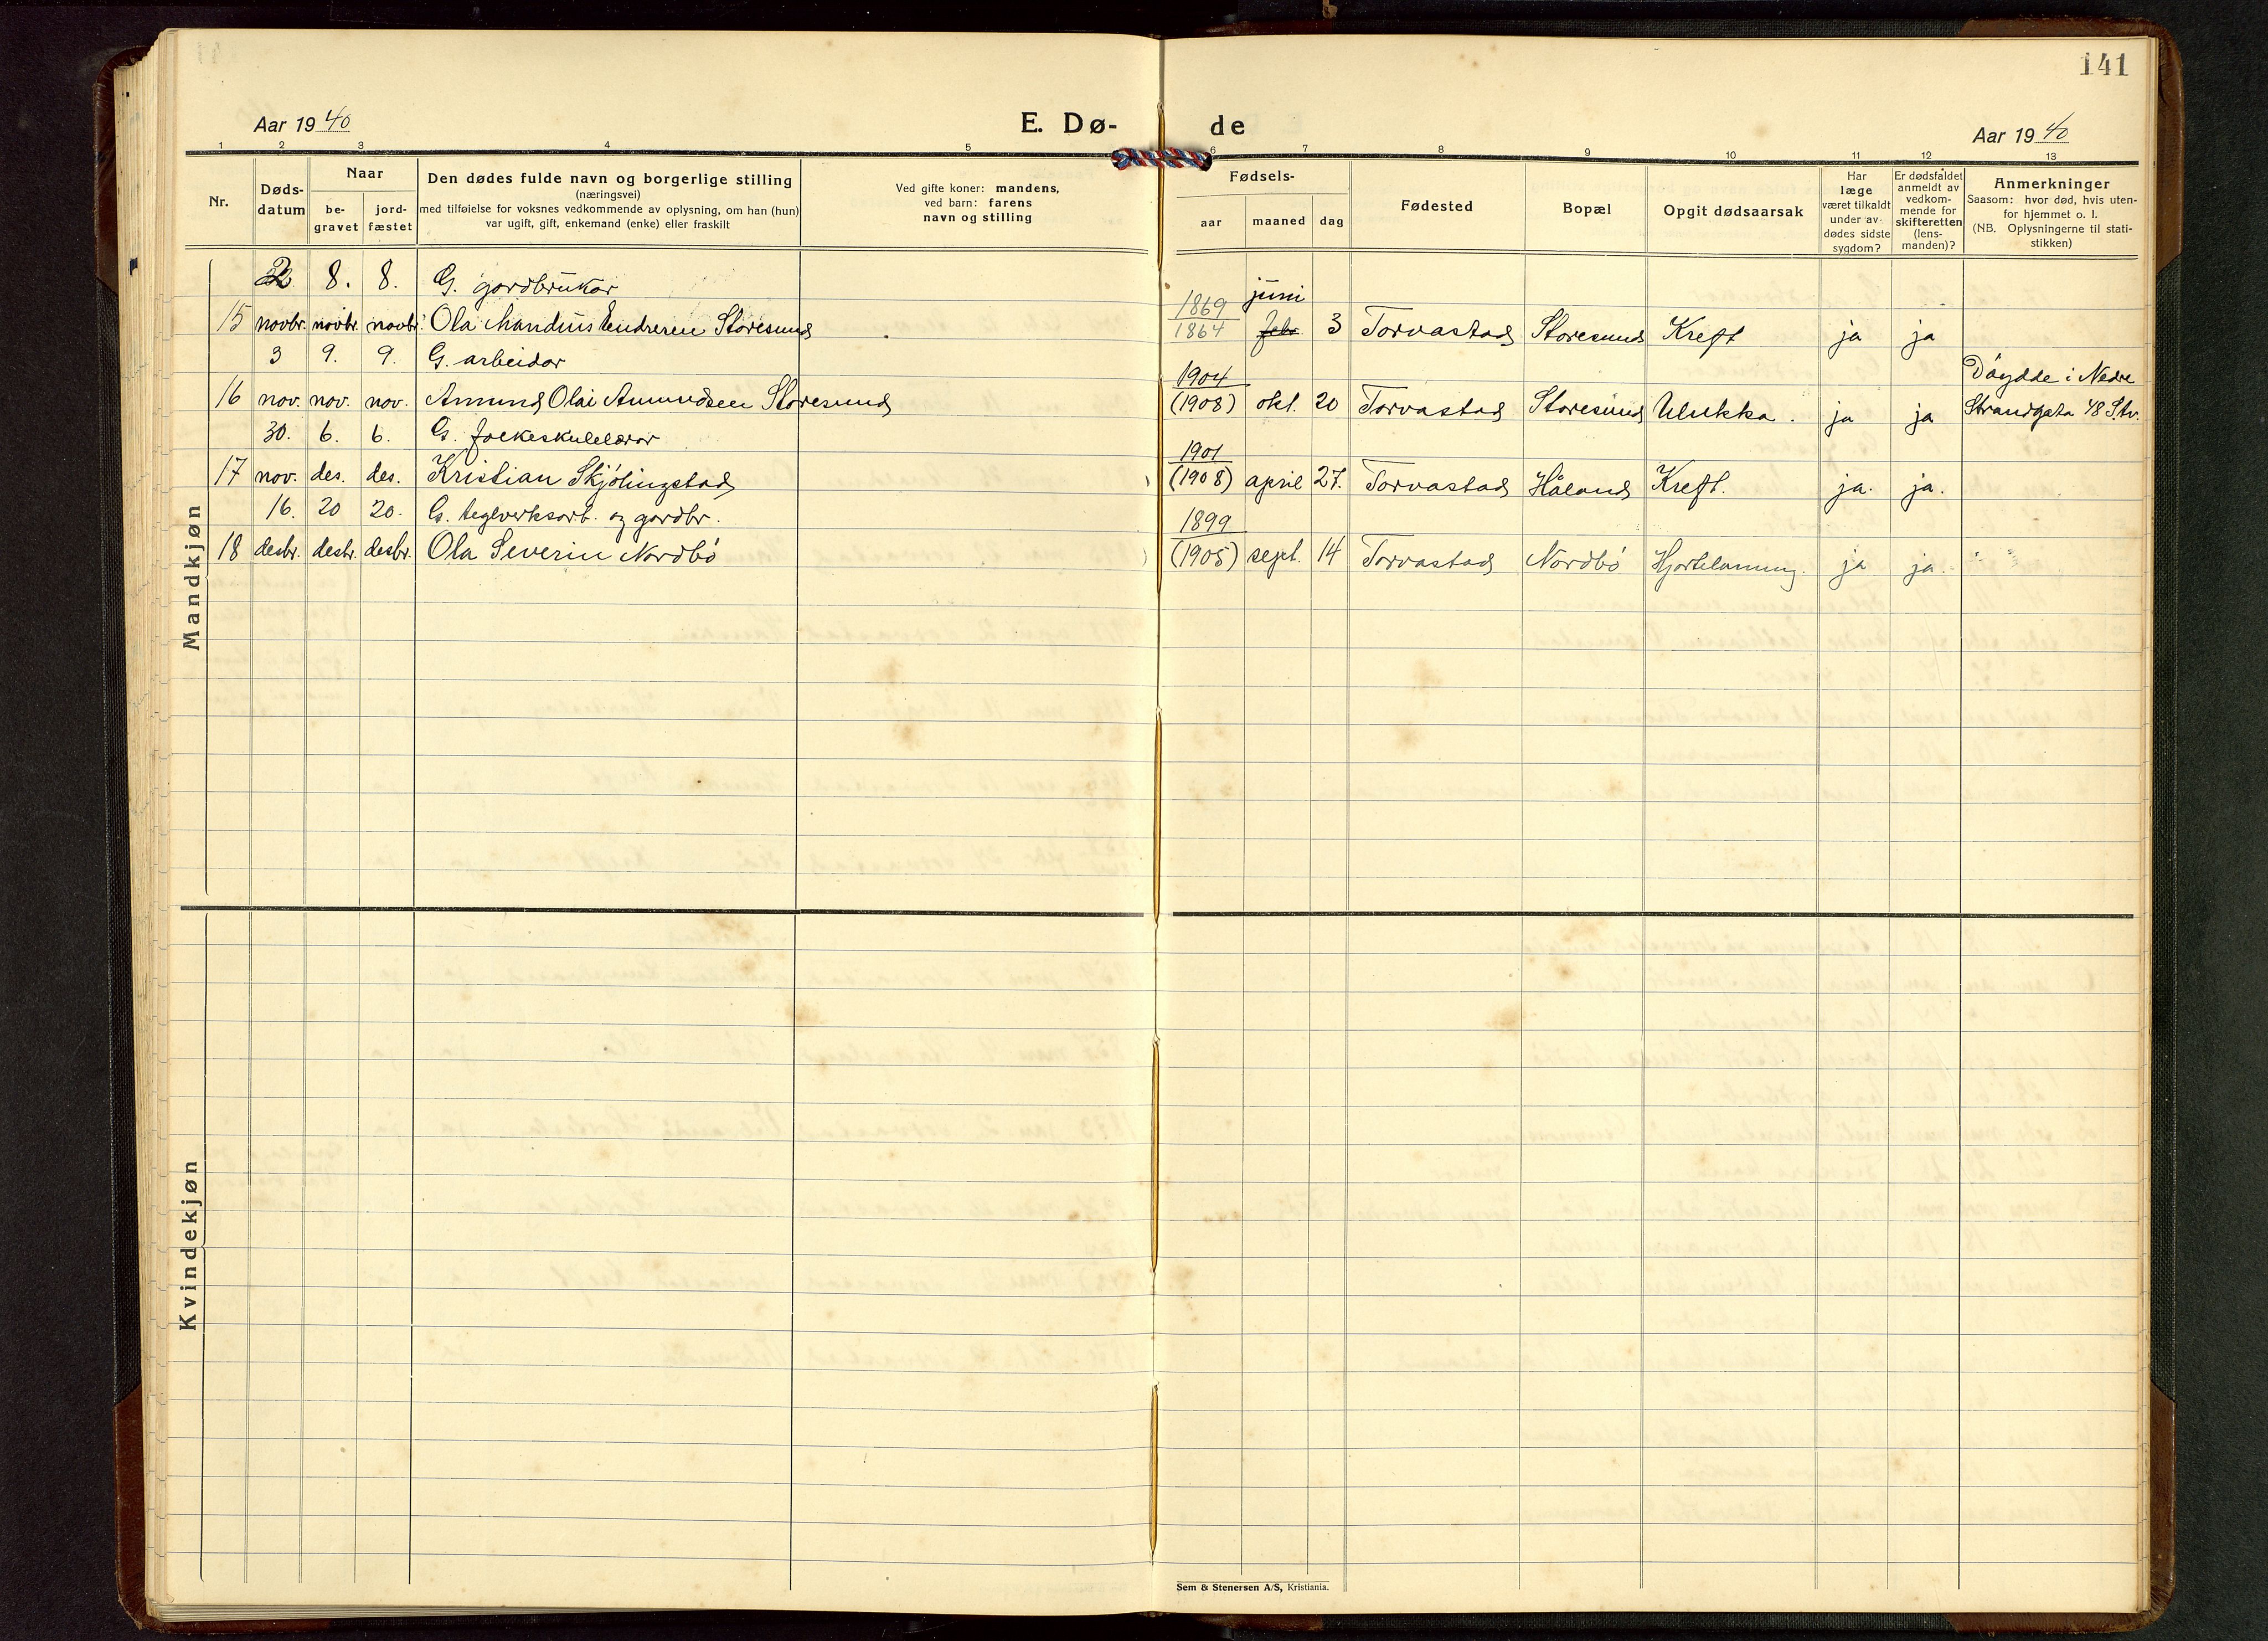 141
Aar 1940
E. Dø-
de
Aar 1940
1 2 3 4 5 6 7 8 9 10 11 12 13
Nr.
Døds-
datum
Naar
be-
gravet
jord-
fæstet
Den dødes fulde navn og borgerlige stilling
(næringsvei)
med tilføielse for voksnes vedkommende av oplysning, om han (hun)
var ugift, gift, enkemand (enke) eller fraskilt
Ved gifte koner: mandens,
ved barn: farens
navn og stilling
Fødsels-
aar maaned dag
Fødested
Bopæl
Opgit dødsaarsak
Har
læge
været tilkaldt
under av-
dødes sidste
sygdom?
Er dødsfaldet
anmeldt av
vedkom-
mende for
skifteretten
(lens-
manden)?
Anmerkninger
Saasom: hvor død, hvis uten-
for hjemmet o. l.
(NB. Oplysningerne til stati-
stikken)
Mandkjøn
2 8. 8. G. gardbrukar
1869 juni
15 novbr. novbr. novbr. Ola Mandius Endresen Storesund 1864 febr. 3 Torvastad Storesund Kreft ja ja
3 9. 9. G. arbeidar
1904 Døydde i Nedre
16 nov. nov. nov. Amund Olai Amundsen Storesund (1908) okt. 20 Torvastad Storesund Ulukka. ja ja Strandgata 48 Stv.
30. 6. 6. G. folkeskulelærar
1901
17 nov. des. des. Kristian Skjølingstad (1908) april 27. Torvastad Håland Kreft. ja. ja.
16. 20 20. G. teglverksarb. og gardbr.
1899
18 desbr. desbr. desbr. Ola Severin Nordbø (1905) sept. 14 Torvastad Nordbø Hjartelamning. ja ja.
Kvindekjøn
Sem & Stenersen A/S, Kristiania.